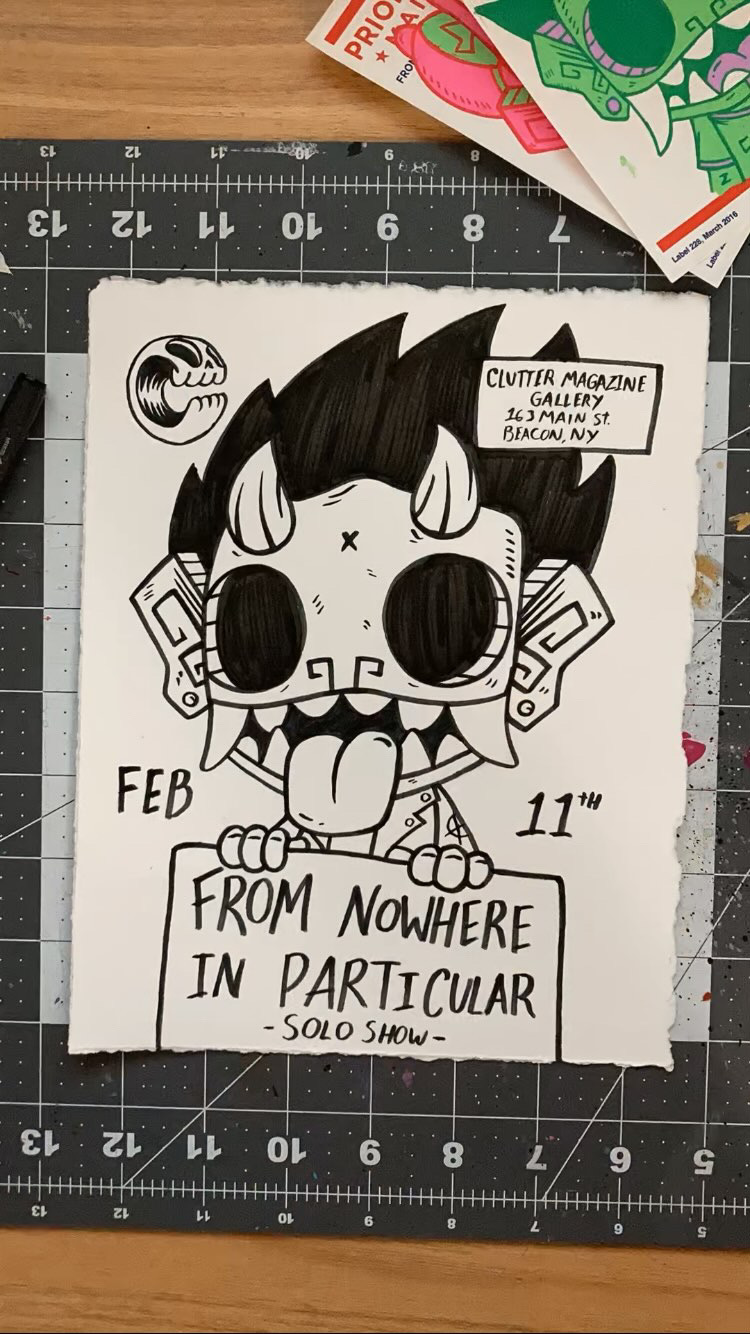 PRIOR
MAI
FRO
Label 228, March 2016
Label
13 12 11 10 9 8
13 12 11 10 9 8 7
CLUTTER MAGAZINE
GALLERY
163 MAIN ST.
BEACON, NY
FEB
11TH
FROM NOWHERE
IN PARTICULAR
-SOLO SHOW-
13 12 11 10 9 8 7 6 5
13 12 11 10 9 8 7 6 5